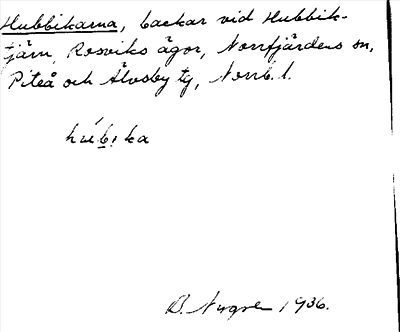 Hubbikarna, backar vid Hubbik-
tjärn, Rosviks ägor, Norrfjärdens sn,
Piteå och Älvsby tg, Norrb. l.
húb̲ika
1936.